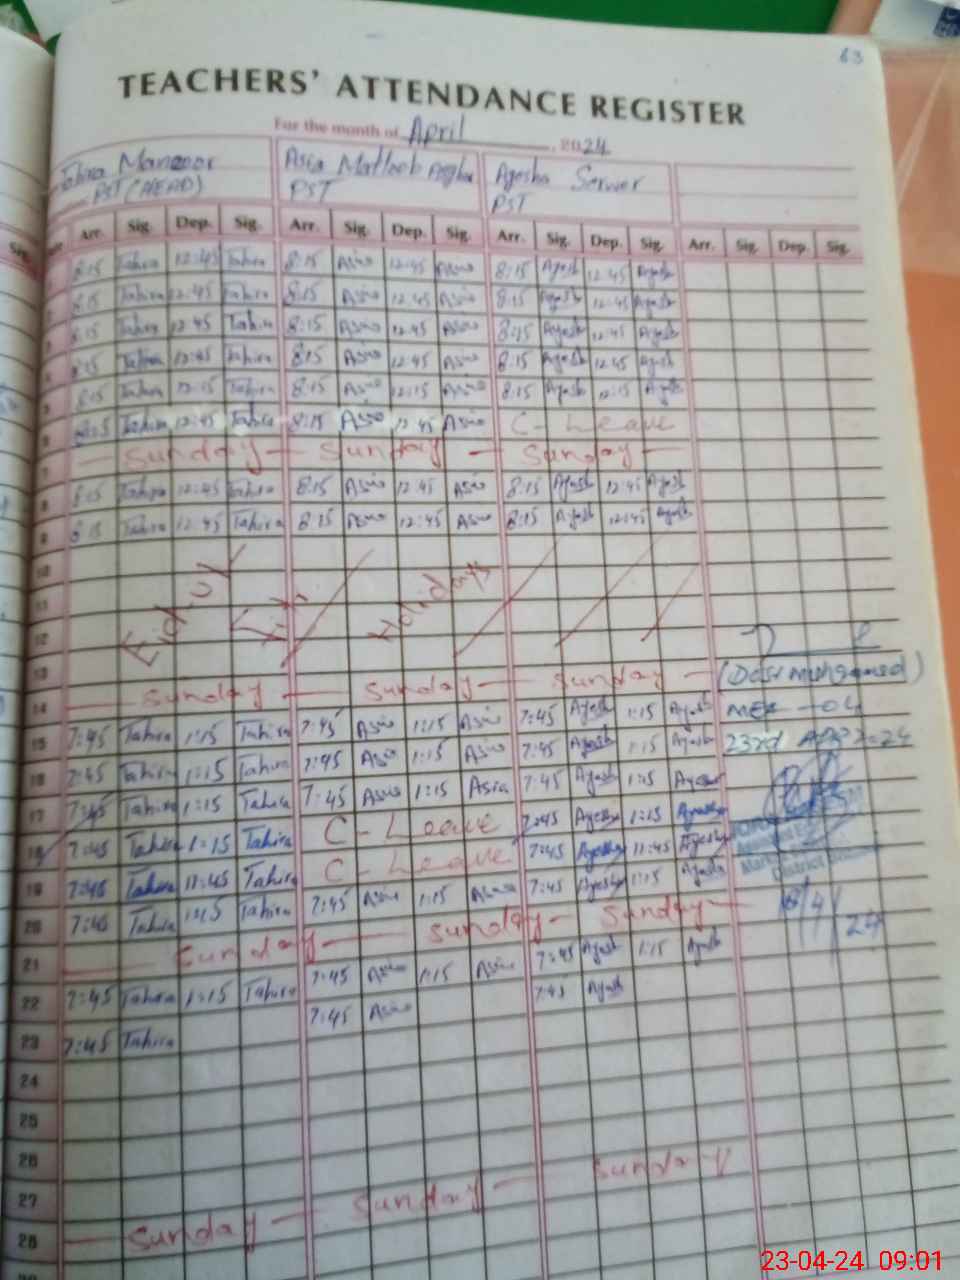 63
TEACHERS' ATTENDANCE REGISTER
For the month of April, 2024
Tahira Manzoor Asia Matloob Ayesha Serwer
PST (HEAD) PST PST
Arr. Sig. Dep. Sig. Arr. Sig. Dep. Sig. Arr. Sig. Dep. Sig. Arr. Sig. Dep. Sig.
8:15 Tahira 12:45 Tahira 8:15 Asia 12:45 Asia 8:15 Ayesh 12:45 Ayesh
8:15 Tahira 12:45 Tahira 8:15 Asia 12:45 Asia 8:15 Ayesh 12:45 Ayesh
8:15 Tahira 12:45 Tahira 8:15 Asia 12:45 Asia 8:15 Ayesh 12:45 Ayesh
8:15 Tahira 12:45 Tahira 8:15 Asia 12:45 Asia 8:15 Ayesh 12:45 Ayesh
8:15 Tahira 12:15 Tahira 8:15 Asia 12:15 Asia 8:15 Ayesh 12:15 Ayesh
8:15 Tahira 12:45 Tahira 8:15 Asia 12:45 Asia C- Leave
7 Sunday Sunday Sunday
8 8:15 Tahira 12:45 Tahira 8:15 Asia 12:45 Asia 8:15 Ayesh 12:45 Ayesh
9 8:15 Tahira 12:45 Tahira 8:15 Asia 12:45 Asia 8:15 Ayesh 12:45 Ayesh
10
11 Eid-ul Holidays
12
13
14 Sunday Sunday Sunday
15 7:45 Tahira 1:15 Tahira 7:45 Asia 1:15 Asia 7:45 Ayesh 1:15 Ayesh MEA-04
16 7:45 Tahira 1:15 Tahira 7:45 Asia 1:15 Asia 7:45 Ayesh 1:15 Ayesh 23rd
17 7:45 Tahira 1:15 Tahira 7:45 Asia 1:15 Asia 7:45 Ayesh 1:15
18 7:45 Tahira 1:15 Tahira C- Leave 7:45 Ayesha 1:15 Ayesha
19 7:45 Tahira 11:45 Tahira C- Leave 7:45 Ayesha 11:45 Ayesha
20 7:45 Tahira 1:15 Tahira 7:45 Asia 1:15 Asia 7:45 Ayesha 1:15 Ayesha
District
21 Sunday Sunday Sunday 24
22 7:45 Tahira 1:15 Tahira 7:45 Asia 1:15 Asia 7:45 Ayesh 1:15 Ayesh
23 7:45 Tahira 7:45 Asia 7:45 Ayesh
24
25
26
27
28 Sunday Sunday Sunday
23-04-24 09:01